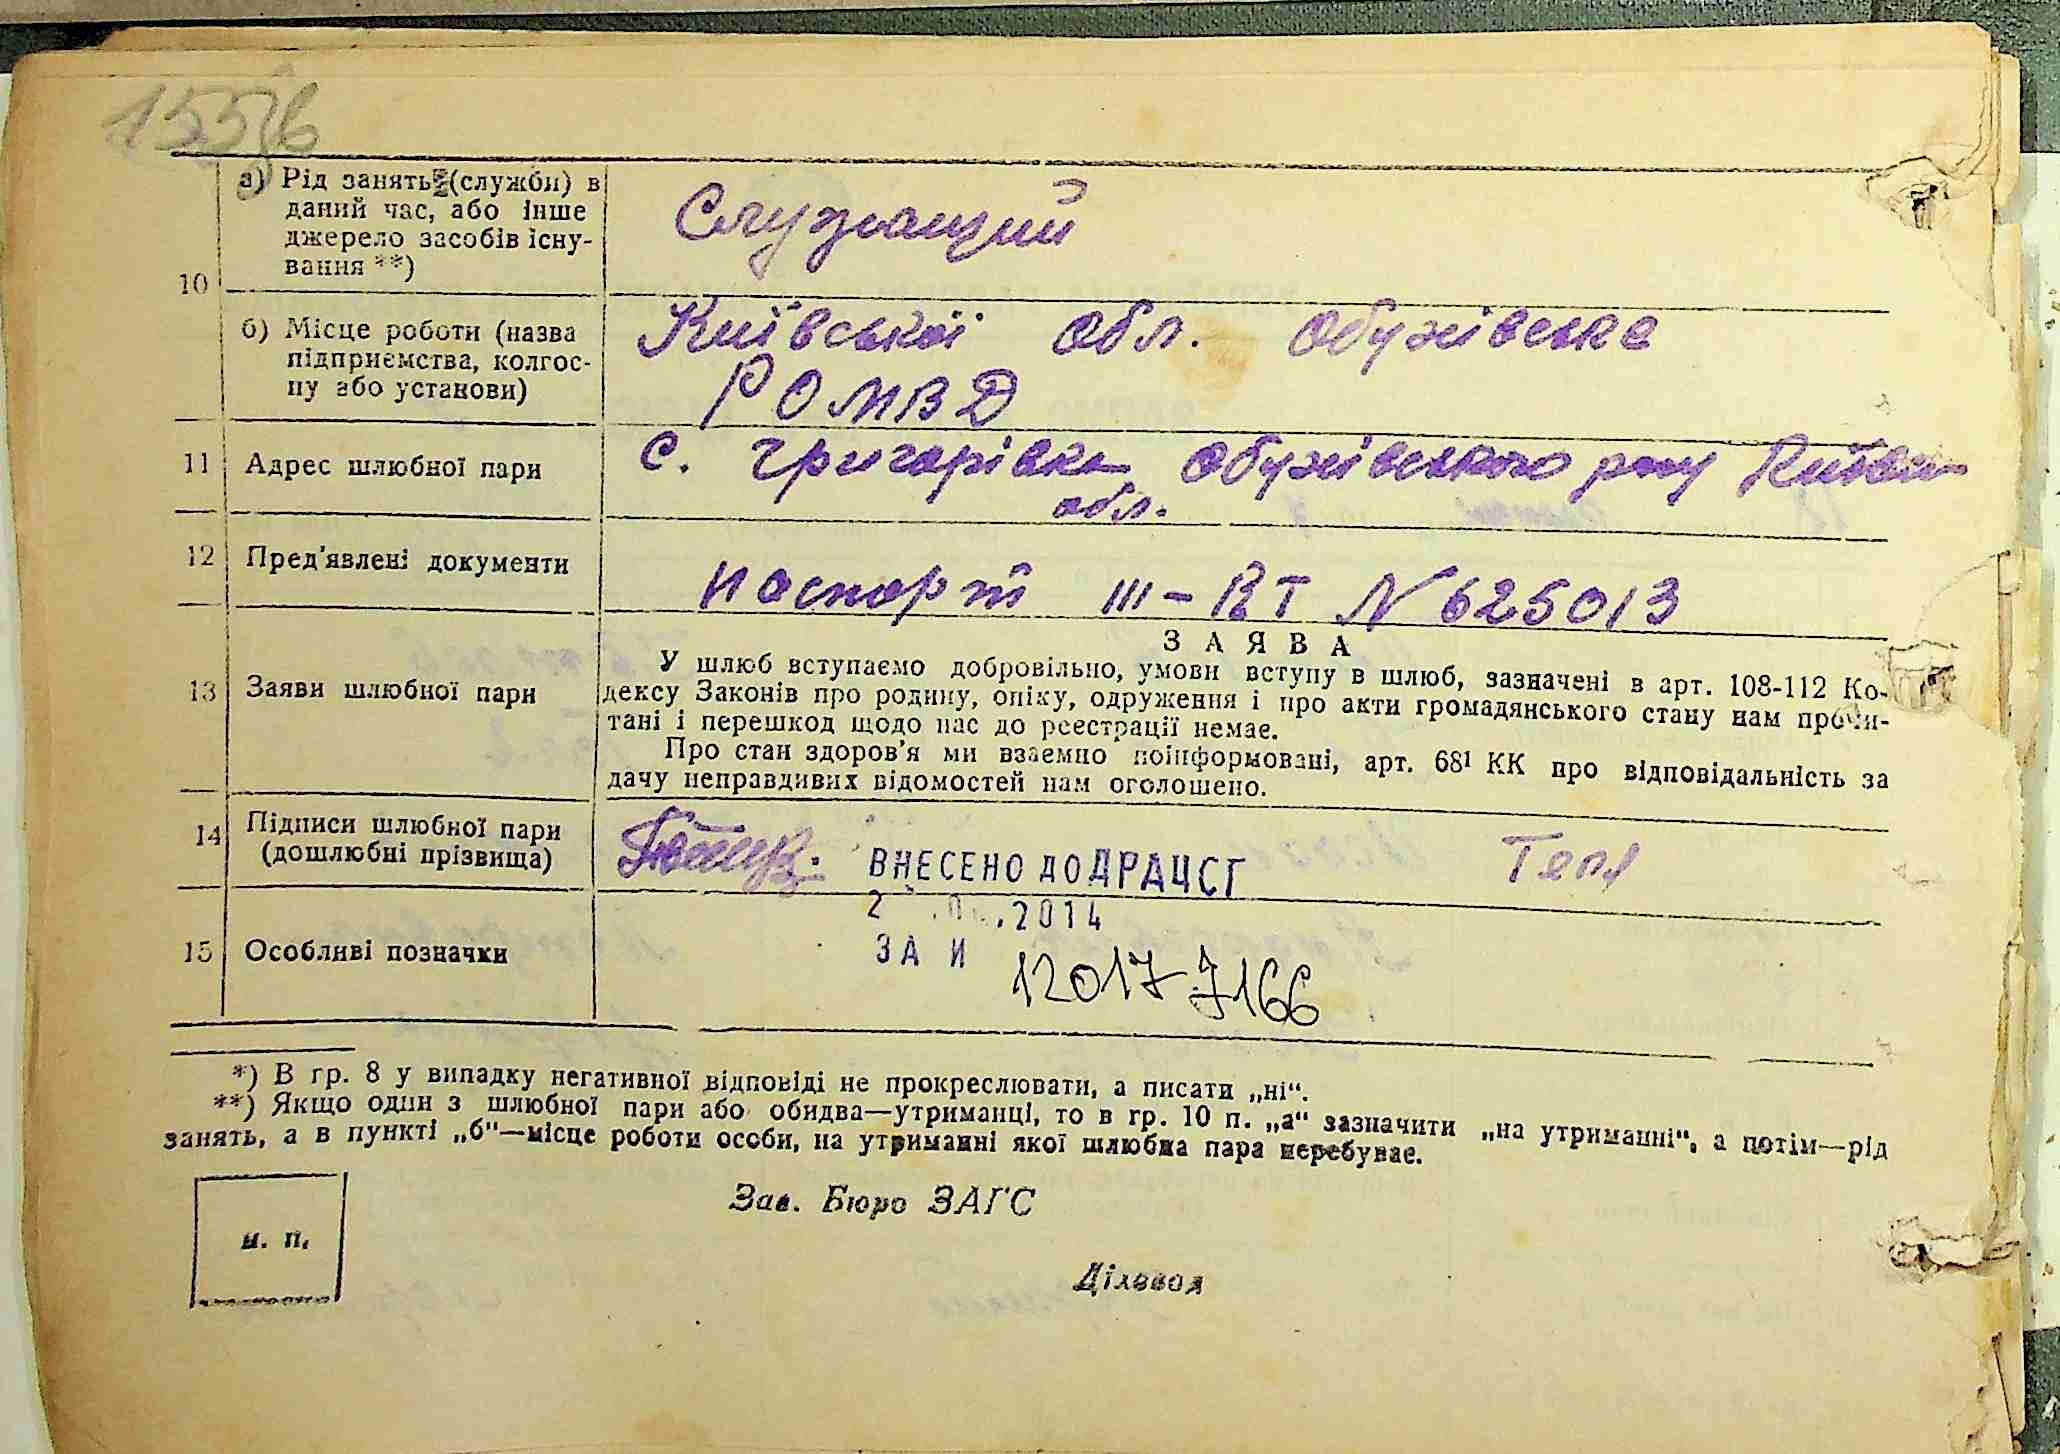 155зв
а) Рід занять (служби) в
даний час, або інше
джерело засобів існу-
вання **)
Служащий
10
б) Місце роботи (назва
підприємства, колгос-
пу або установи)
Київської обл. Обухівське
РОМВД
11 Адрес шлюбної пари
с. Григорівка Обухівського р-ну Київськ
обл.
12 Пред'явлені документи
паспорт III-ВТ N 625013
13 Заяви шлюбної пари
ЗАЯВА
У шлюб вступаємо добровільно, умови вступу в шлюб, зазначені в арт. 108-112 Ко-
дексу Законів про родину, опіку, одруження і про акти громадянського стану нам прочи-
тані і перешкод щодо нас до реєстрації немає.
Про стан здоров'я ми взаємно поінформовані, арт. 68¹ КК про відповідальність за
дачу неправдивих відомостей нам оголошено.
14 Підписи шлюбної пари
(дошлюбні прізвища)
ВНЕСЕНО ДО ДРАЦСГ
2 .2014
ЗА И
12017 7166
15 Особливі позначки
*) В гр. 8 у випадку негативної відповіді не прокреслювати, а писати „ні“.
**) Якщо один з шлюбної пари або обидва—утриманці, то в гр. 10 п. „а“ зазначити „на утриманні“, а потім—рід
занять, а в пункті „б“—місце роботи особи, на утриманні якої шлюбна пара перебуває.
м. п.
Зав. Бюро ЗАГС
Діловод